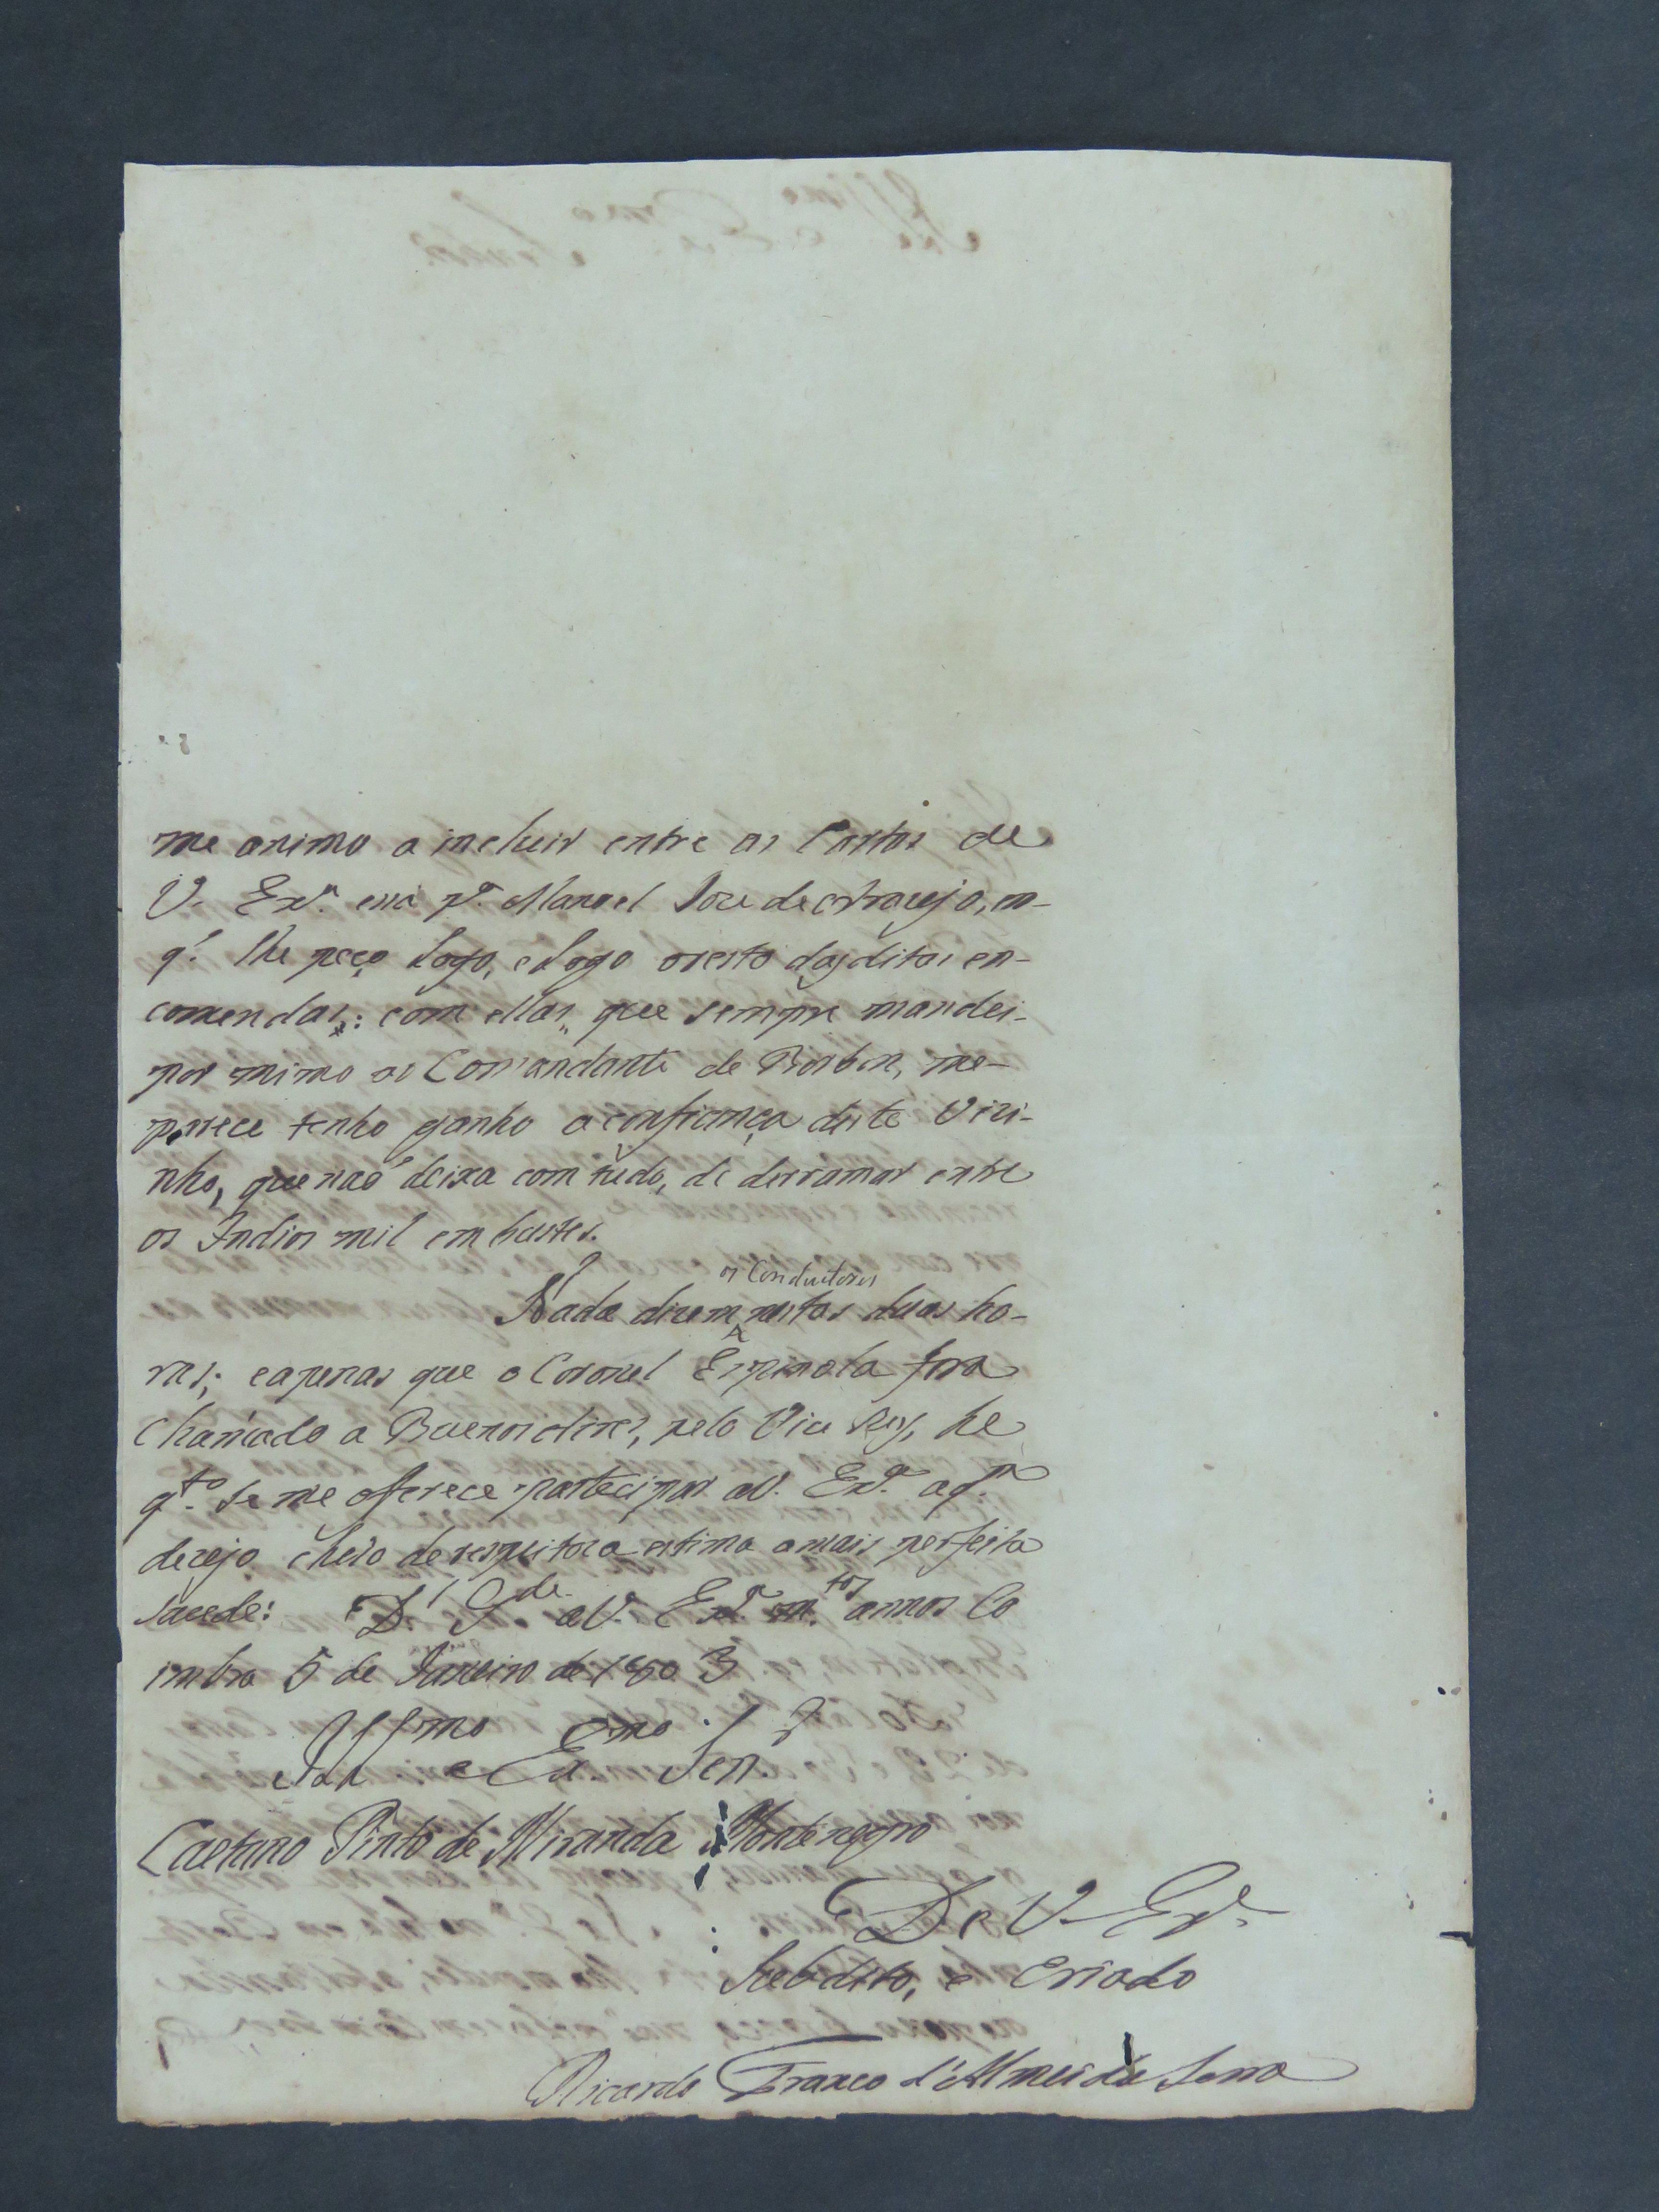 me animo a incluir entre as Cartas de
V. Exª. essa pª. Manoel Joze de Araujo, en-
q.' lhe peço logo, e logo o resto das ditas en-
comendas: com ellas, que sempre mandei-
por mimo ao Comandante de Borbon, me-
parece tenho ganho a confiança deste Vizi-
nho, que naõ deixa com tudo, de derramar entre
os Indios mil embustes.
Nada dizem os Conductores nestas duas ho-
ras; e apenas que o Coronel Espinola fora
chamado a Buenos Aires, pelo Vice Rey, he
q.to se me oferece partecipar a V. Exª. a q.m
dezejo cheio de respeitoza estima a mais perfeita
saude: D.' G.de a V. Exª. m.tos annos Co
imbra 5 de Janeiro de 1803
Ill.mo e Ex.mo Sen.r
Caetano Pinto de Miranda Montenegro
De V. Exª.
Subdito, e Criado
Ricardo Franco d'Almeida Serra